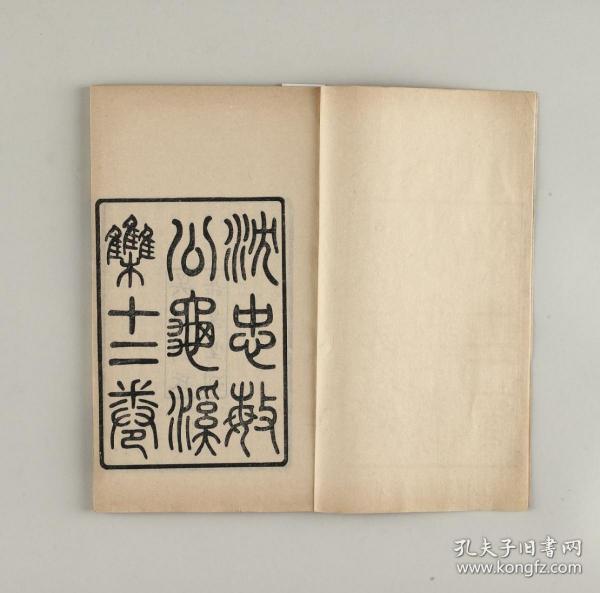 沈忠敏
公龜溪
集十二卷
孔夫子旧书网
www.kongfz.com